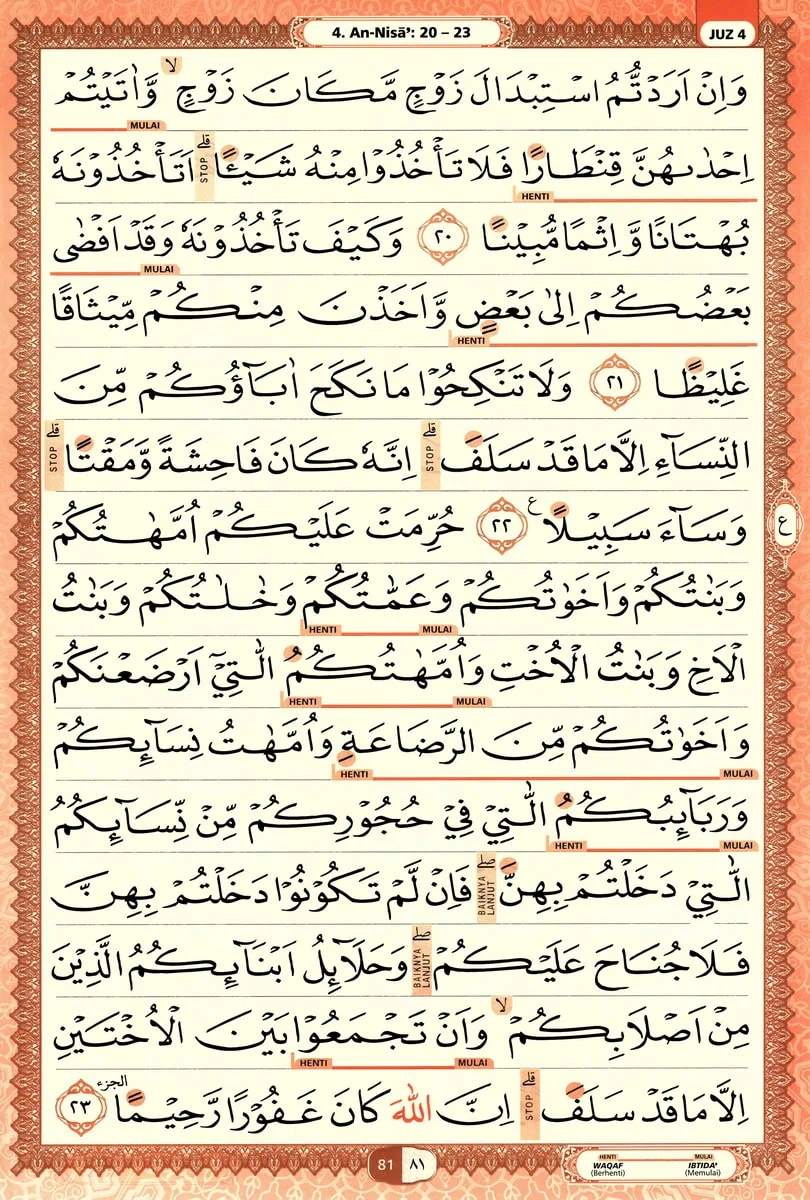 4. An-Nisā': 20 – 23
JUZ 4
وَاِنْ اَرَدْتُّمُ اسْتِبْدَالَ زَوْجٍ مَّكَانَ زَوْجٍۙ وَّاٰتَيْتُمْ
MULAI
اِحْدٰىهُنَّ قِنْطَارًا فَلَا تَأْخُذُوْا مِنْهُ شَيْـًٔاۗ اَتَأْخُذُوْنَهٗ
STOP
HENTI
بُهْتَانًا وَّاِثْمًا مُّبِيْنًا ٢٠ وَكَيْفَ تَأْخُذُوْنَهٗ وَقَدْ اَفْضٰى
MULAI
بَعْضُكُمْ اِلٰى بَعْضٍ وَّاَخَذْنَ مِنْكُمْ مِّيْثَاقًا
HENTI
غَلِيْظًا ٢١ وَلَا تَنْكِحُوْا مَا نَكَحَ اٰبَاۤؤُكُمْ مِّنَ
النِّسَاۤءِ اِلَّا مَا قَدْ سَلَفَۗ اِنَّهٗ كَانَ فَاحِشَةً وَّمَقْتًاۗ
STOP STOP
وَسَاۤءَ سَبِيْلًا ࣖ ٢٢ حُرِّمَتْ عَلَيْكُمْ اُمَّهٰتُكُمْ
ع
وَبَنٰتُكُمْ وَاَخَوٰتُكُمْ وَعَمّٰتُكُمْ وَخٰلٰتُكُمْ وَبَنٰتُ
HENTI MULAI
الْاَخِ وَبَنٰتُ الْاُخْتِ وَاُمَّهٰتُكُمُ الّٰتِيْٓ اَرْضَعْنَكُمْ
HENTI MULAI
وَاَخَوٰتُكُمْ مِّنَ الرَّضَاعَةِ وَاُمَّهٰتُ نِسَاۤىِٕكُمْ
HENTI MULAI
وَرَبَاۤىِٕبُكُمُ الّٰتِيْ فِيْ حُجُوْرِكُمْ مِّنْ نِّسَاۤىِٕكُمُ
HENTI MULAI
الّٰتِيْ دَخَلْتُمْ بِهِنَّۖ فَاِنْ لَّمْ تَكُوْنُوْا دَخَلْتُمْ بِهِنَّ
BAIKNYA LANJUT
فَلَا جُنَاحَ عَلَيْكُمْۖ وَحَلَاۤىِٕلُ اَبْنَاۤىِٕكُمُ الَّذِيْنَ
BAIKNYA LANJUT
مِنْ اَصْلَابِكُمْۙ وَاَنْ تَجْمَعُوْا بَيْنَ الْاُخْتَيْنِ
HENTI MULAI
اِلَّا مَا قَدْ سَلَفَۗ اِنَّ اللّٰهَ كَانَ غَفُوْرًا رَّحِيْمًا ٢٣ الجزء
STOP
81 ٨١
HENTI MULAI
WAQAF IBTIDA'
(Berhenti) (Memulai)